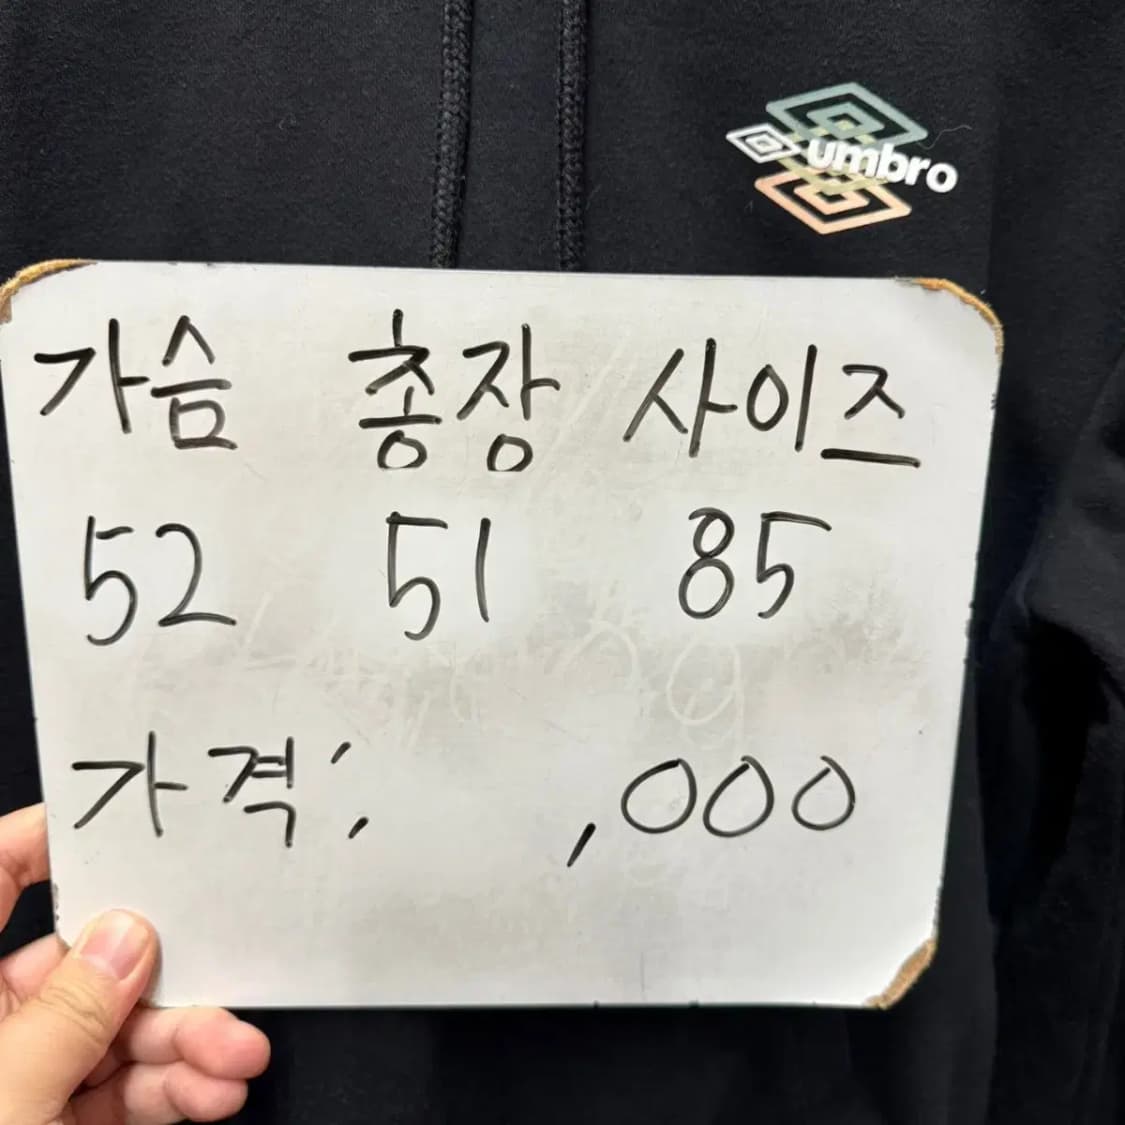 umbro
가슴 총장 사이즈
52 51 85
가격: ,000